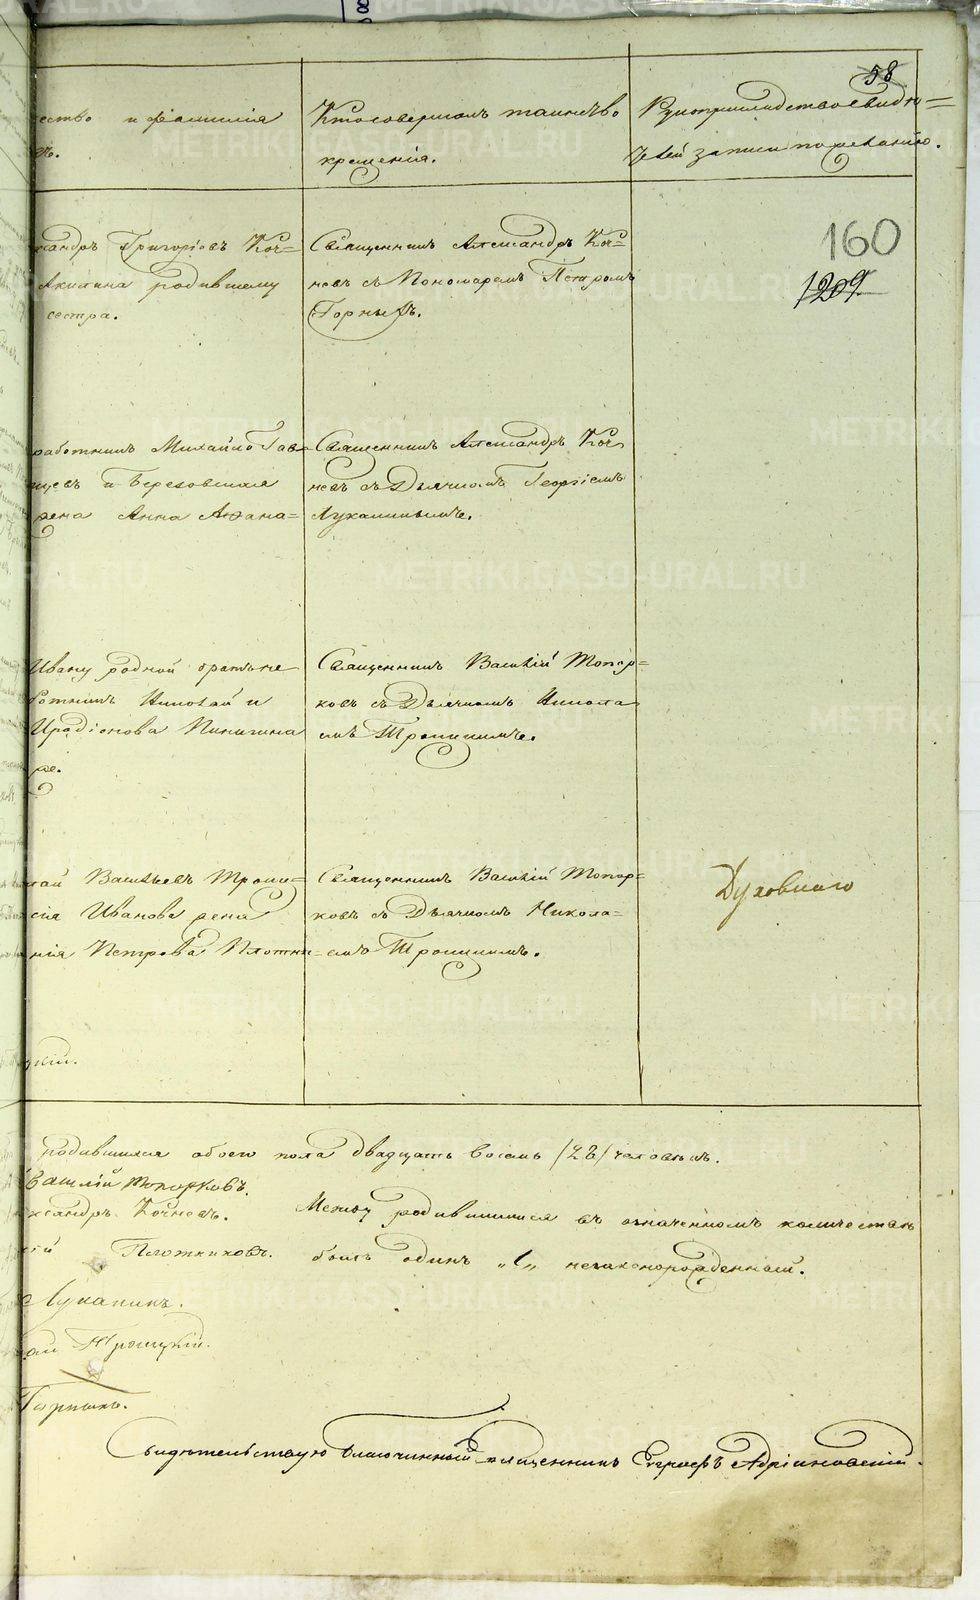 58
ество и фамилія
Кто совершалъ таинство
крещенія.
Рукоприкладство свидѣ=
телей записи по желанію.
160
1209
ксандръ Григорьевъ Коч=
Акилина родившему
сестра.
Священникъ Александръ Коч=
невъ съ Пономаремъ Петромъ
Горныхъ.
работникъ Михайло Гав=
и Березовская
жена Анна Аѳана=
Священникъ Александръ Коч
невъ съ Дьячкомъ Георгіемъ
Луканинымъ.
Ивану родной братъ не
ботникъ Николай и
Иродіонова Пинигина
ра.
Священникъ Василій Топор=
ковъ съ Дьячкомъ Никола
емъ Троицкимъ.
лай Васильевъ Трои=
сія Иванова жена
нія Петрова Плотни=
кій.
Священникъ Василій Топор=
ковъ съ Дьячкомъ Никола=
емъ Троицкимъ.
Духовнаго
родившихся обоего пола двадцать восемь /28/ человѣкъ.
Василій Топорковъ.
ксандръ Кочневъ.
ій Плотниковъ.
Луканинъ.
лай Троицкій.
Горныхъ.
Между родившимися въ означенномъ количествѣ
былъ одинъ „1„ незаконорожденный.
Свидѣтельствую Благочинный священникъ Евграфъ Адріановскій.
METRIKI.GASO-URAL.RU